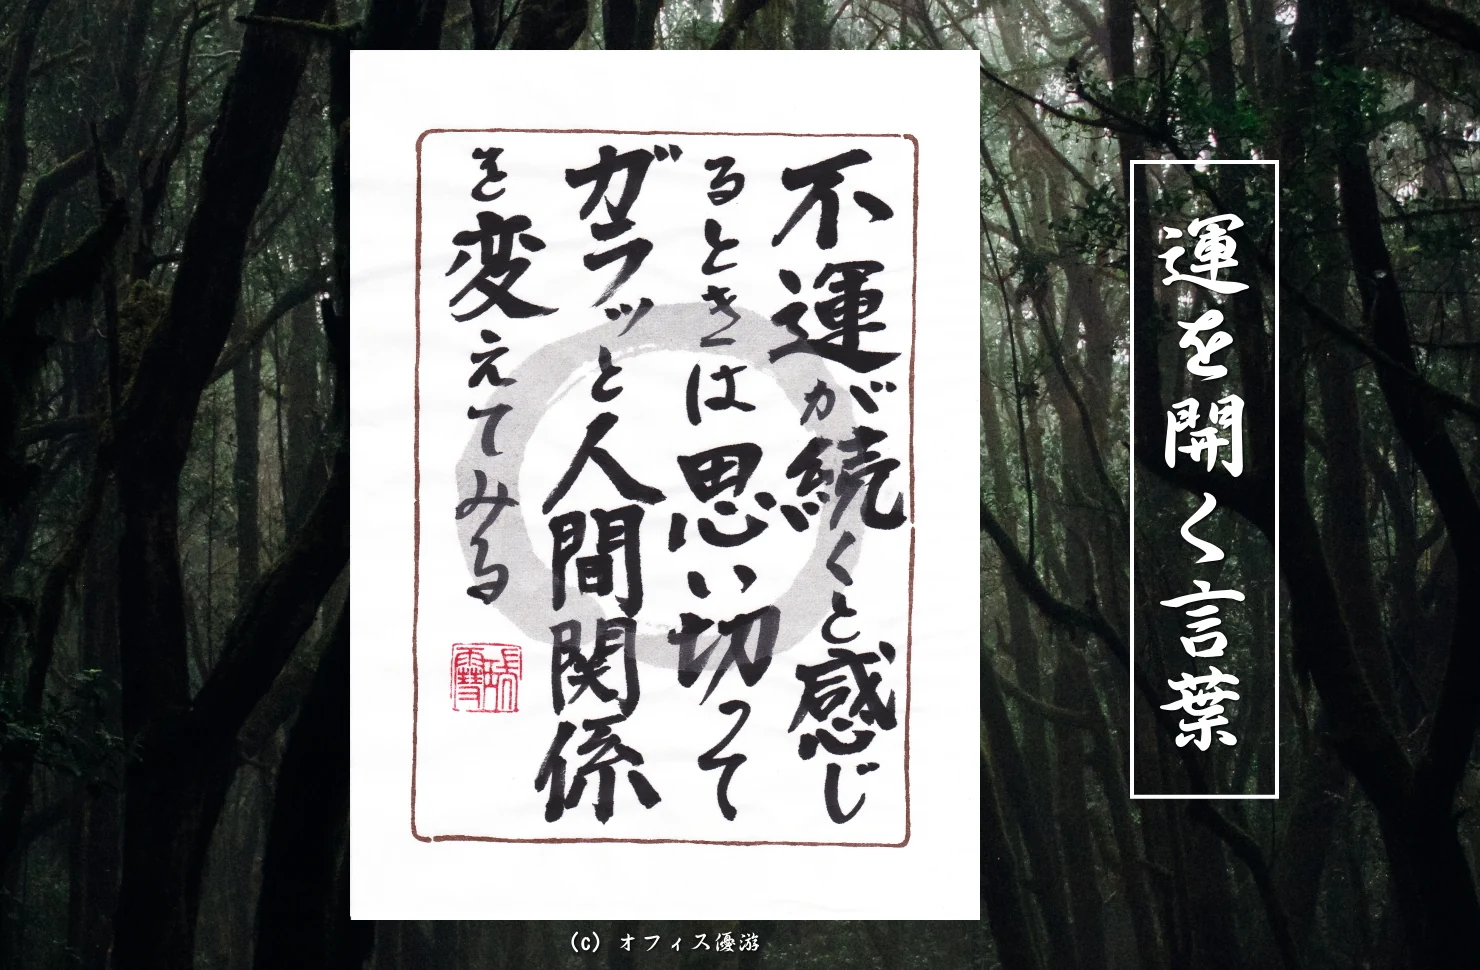 運を開く言葉
不運が続くと感じ
るときは思い切って
ガラッと人間関係
を変えてみる
(c) オフィス優游